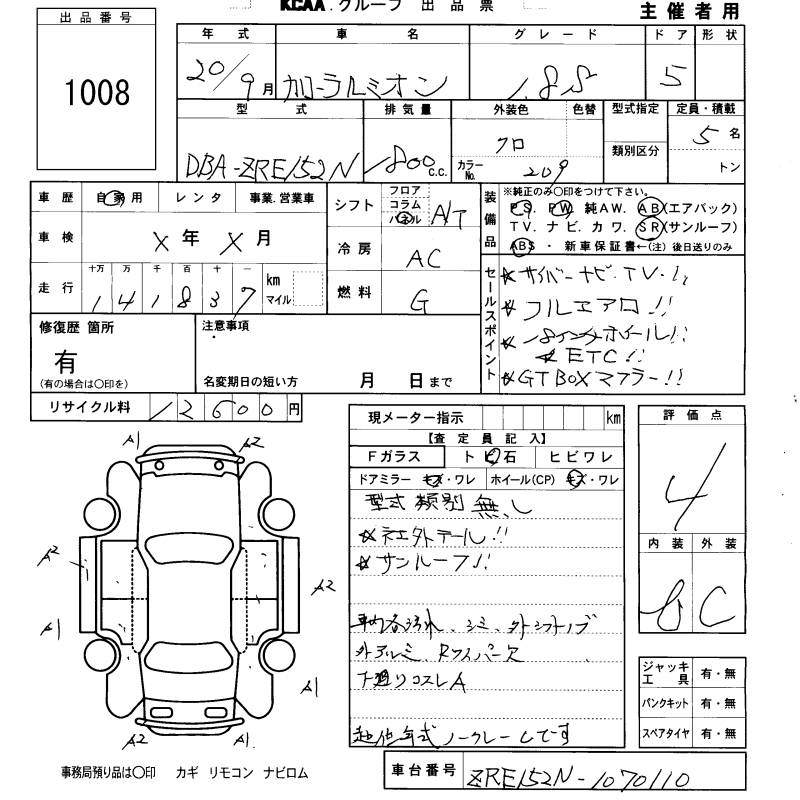 KCAA.グループ 出品票
主催者用
出品番号
1008
年式 車名 グレード ドア 形状
20/9月 カローラルミオン 1.8S 5
型式 排気量 外装色 色替 型式指定 定員・積載
DBA-ZRE152N 1800c.c. クロ カラーNo. 209 類別区分 5名 トン
車歴 自家用 レンタ 事業.営業車
車検 X年 X月
走行 十万 万 千 百 十 一 km マイル
1 4 1 8 3 7
シフト フロア コラム パネル A/T
冷房 AC
燃料 G
装備品 ※純正のみ○印をつけて下さい。
P S. P W 純AW. A B(エアバック)
TV. ナビ. カワ. S R(サンルーフ)
ABS・新車保証書←(注)後日送りのみ
セールスポイント
サイバーナビ・TV・!,
フルエアロ!!
18インチホイール!!
ETC!!
GTBOXマフラー!!
修復歴 箇所
有
(有の場合は○印を)
注意事項
名変期日の短い方 月 日まで
リサイクル料 12600円
現メーター指示 km
【査定員記入】
Fガラス トビ石 ヒビワレ
ドアミラー キズ・ワレ ホイール(CP) キズ・ワレ
型式類別無し
社外テール!!
サンルーフ!!
車内各汚れ、シミ、外シフトノブ
外アルミ、Rワイパース
下廻りコスレA
起他年式ノークレームです
評価点
4
内装 外装
B C
ジャッキ工具 有・無
パンクキット 有・無
スペアタイヤ 有・無
A1 A2
A2 A2
A1 A1
A2 A1
事務局預り品は○印 カギ リモコン ナビロム
車台番号 ZRE152N-1070110